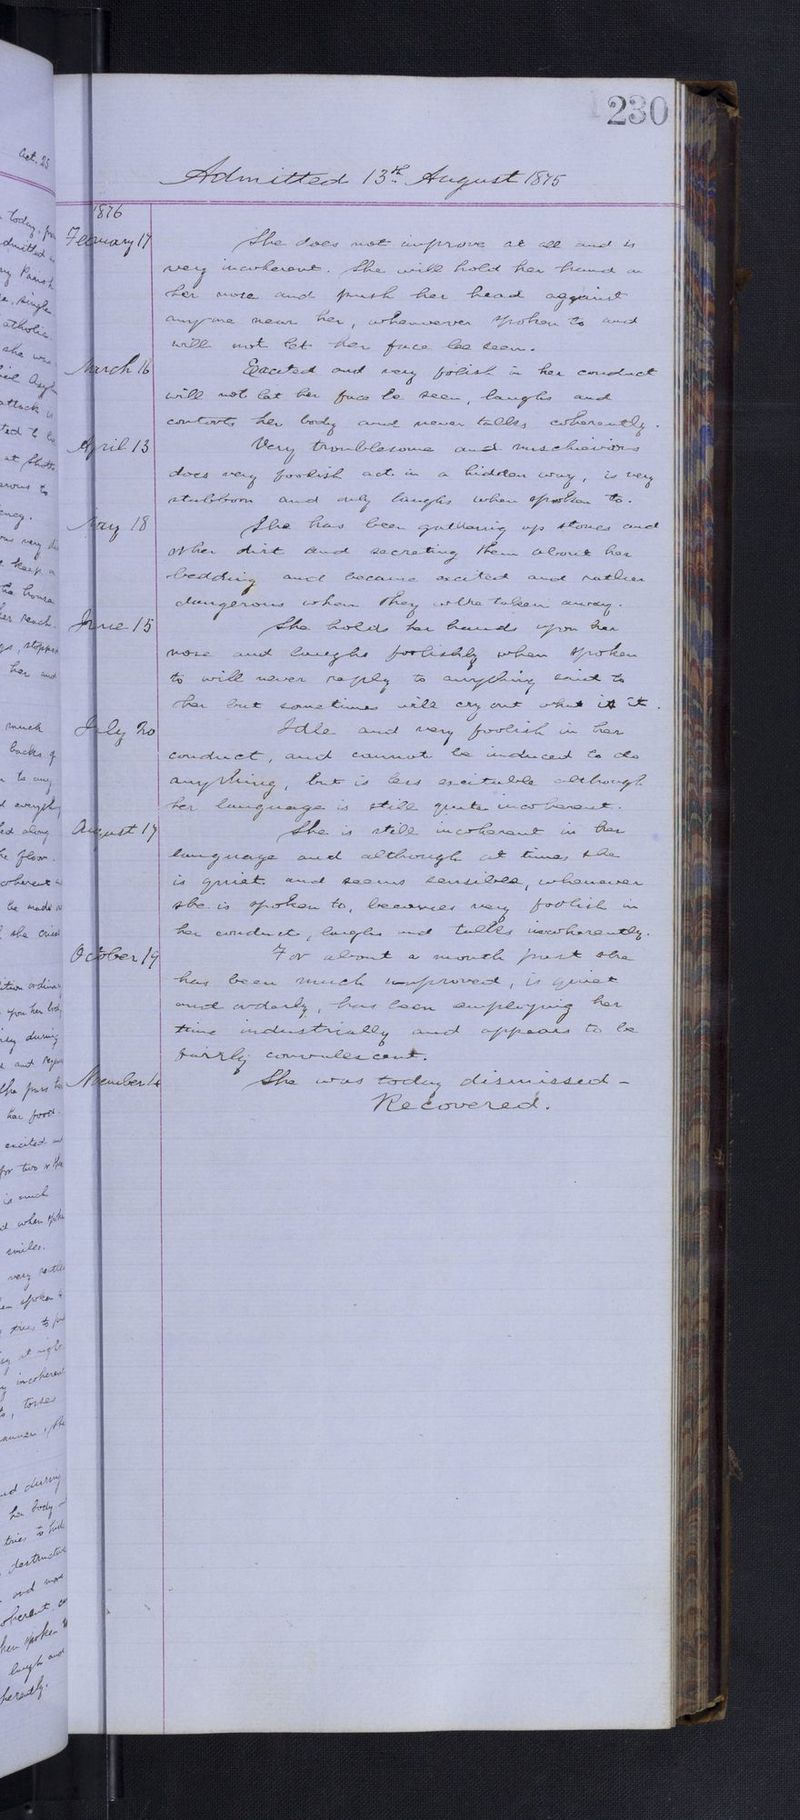 230
Admitted 13th August 1875
1876
February 17 She does not improve at all and is
very incoherent. She will hold her hand on
her nose and push her head against
anyone near her, whenever spoken to and
will not let her face be seen.
March 16 Excited and very folish in her conduct
will not let her face be seen, laughs and
contorts her body and never talks coherently.
April 13 Very troublesome and mischievious
does very foolish act in a hidden way, is very
stubborn and only laughs when spoken to.
May 18 She has been gathering up stones and
other dirt and secreting them about her
bedding and became excited and rather
dangerous when they were taken away.
June 15 She holds her hands upon her
nose and laughs foolishly when spoken
to will never reply to anything said to
her but sometimes will cry out what is it.
July 20 Idle and very foolish in her
conduct, and cannot be induced to do
anything, but is less excitable although
her language is still quite incoherent.
August 17 She is still incoherent in her
language and although at times she
is quiet and seems sensible, whenever
she is spoken to, becomes very foolish in
her conduct, laughs and talks incoherently.
October 19 For about a month past she
has been much improved, is quiet
and orderly, has been employing her
time industrially and appears to be
fairly convalescent.
November 16 She was today dismissed -
Recovered.